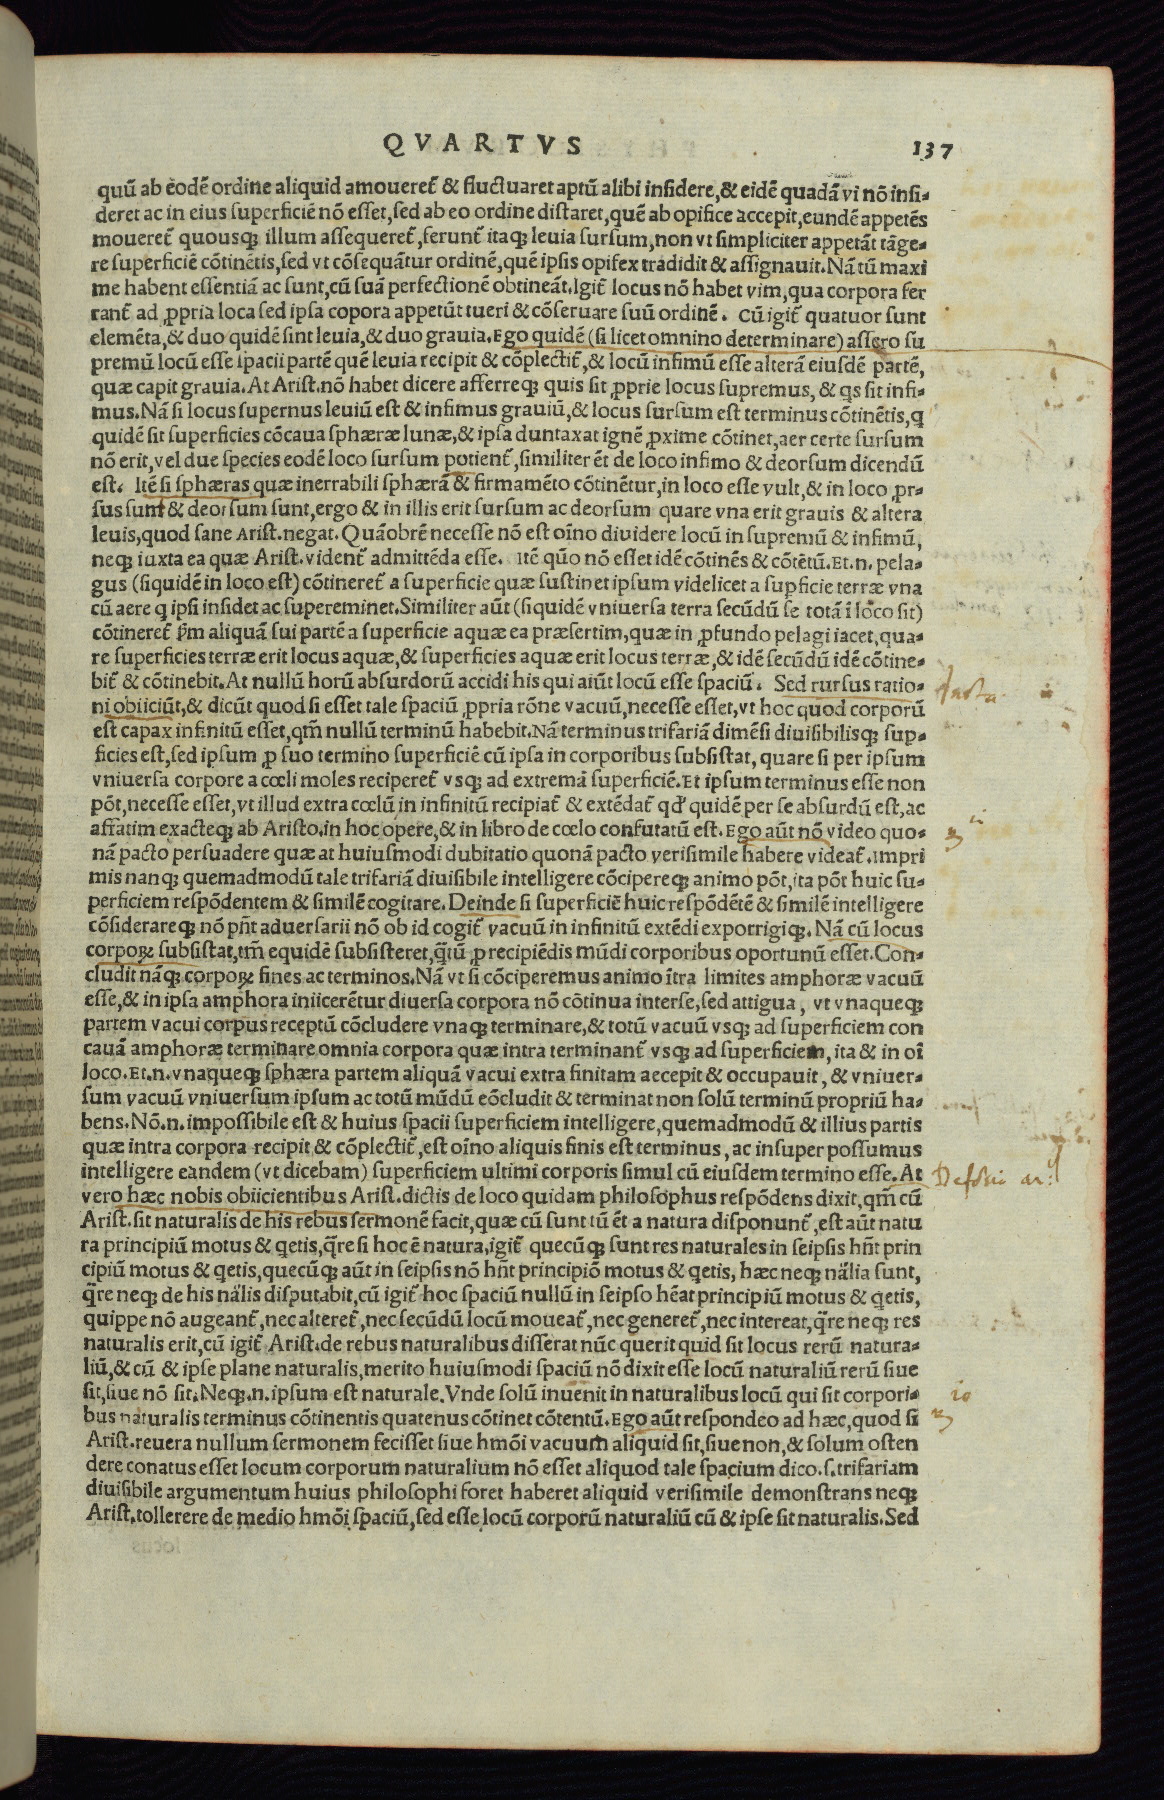 QVARTVS 137
quũ ab eodẽ ordine aliquid amoueret̃ & fluctuaret aptũ alibi insidere, & eidẽ quadã vi nõ insi-
deret ac in eius superficiẽ nõ esset, sed ab eo ordine distaret, quẽ ab opifice accepit, eundẽ appetẽs
moueret̃ quousqꝫ illum assequeret̃, ferunt̃ itaqꝫ leuia sursum, non vt simpliciter appetãt tãge-
re superficiẽ cõtinẽtis, sed vt cõsequãtur ordinẽ, quẽ ipsis opifex tradidit & assignauit. Nã tũ maxi
me habent essentiã ac sunt, cũ suã perfectionẽ obtineãt. Igit̃ locus nõ habet vim, qua corpora fer
rant̃ ad ꝓpria loca sed ipsa copora appetũt tueri & cõseruare suũ ordinẽ. Cũ igit̃ quatuor sunt
elemẽta, & duo quidẽ sint leuia, & duo grauia. Ego quidẽ (si licet omnino determinare) assero su
premũ locũ esse spacii partẽ quẽ leuia recipit & cõplectit̃, & locũ infimũ esse alterã eiusdẽ partẽ,
quæ capit grauia. At Arist. nõ habet dicere afferreqꝫ quis sit ꝓprie locus supremus, & q̃s sit infi-
mus. Nã si locus supernus leuiũ est & infimus grauiũ, & locus sursum est terminus cõtinẽtis, q̃
quidẽ sit superficies cõcaua sphæræ lunæ, & ipsa duntaxat ignẽ ꝓxime cõtinet, aer certe sursum
nõ erit, vel due species eodẽ loco sursum potient̃, similiter ẽt de loco infimo & deorsum dicendũ
est. Itẽ si sphæras quæ inerrabili sphærã & firmamẽto cõtinẽtur, in loco esse vult, & in loco ꝓr-
sus sunt & deorsum sunt, ergo & in illis erit sursum ac deorsum quare vna erit grauis & altera
leuis, quod sane Arist. negat. Quãobrẽ necesse nõ est oĩno diuidere locũ in supremũ & infimũ,
neqꝫ iuxta ea quæ Arist. vident̃ admittẽda esse. Itẽ quõ nõ esset idẽ cõtinẽs & cõtẽtũ. Et. n. pela-
gus (siquidẽ in loco est) cõtineret̃ a superficie quæ sustinet ipsum videlicet a supficie terræ vna
cũ aere q̃ ipsi insidet ac supereminet. Similiter aũt (siquidẽ vniuersa terra secũdũ se totã ĩ loco sit)
cõtineret̃ ꝑm aliquã sui partẽ a superficie aquæ ea præsertim, quæ in ꝓfundo pelagi iacet, qua-
re superficies terræ erit locus aquæ, & superficies aquæ erit locus terræ, & idẽ secũdũ idẽ cõtine-
bit̃ & cõtinebit. At nullũ horũ absurdorũ accidi his qui aiũt locũ esse spaciũ. Sed rursus ratio-
ni obiiciũt, & dicũt quod si esset tale spaciũ ꝓpria rõne vacuũ, necesse esset, vt hoc quod corporũ
est capax infinitũ esset, qm̃ nullũ terminũ habebit. Nã terminus trifariã dimẽsi diuisibilisqꝫ sup-
ficies est, sed ipsum ꝓ suo termino superficiẽ cũ ipsa in corporibus subsistat, quare si per ipsum
vniuersa corpore a cœli moles reciperet̃ vsqꝫ ad extremã superficiẽ. Et ipsum terminus esse non
põt, necesse esset, vt illud extra cœlũ in infinitũ recipiat̃ & extẽdat̃ qd̃ quidẽ per se absurdũ est, ac
affatim exacteqꝫ ab Aristo. in hoc opere, & in libro de cœlo confutatũ est. Ego aũt nõ video quo-
nã pacto persuadere quæat huiusmodi dubitatio quonã pacto verisimile habere videat̃. Impri
mis nanqꝫ quemadmodũ tale trifariã diuisibile intelligere cõcipereqꝫ animo põt, ita põt huic su-
perficiem respõdentem & similẽ cogitare. Deinde si superficiẽ huic respõdẽtẽ & similẽ intelligere
cõsiderareqꝫ nõ pñt aduersarii nõ ob id cogit̃ vacuũ in infinitũ extẽdi exporrigiqꝫ. Nã cũ locus
corpoꝝ subsistat, tm̃ equidẽ subsisteret, q̃tũ ꝓ recipiẽdis mũdi corporibus oportunũ esset. Con-
cludit nãqꝫ corpoꝝ fines ac terminos. Nã vt si cõciperemus animo ĩtra limites amphoræ vacuũ
esse, & in ipsa amphora iniicerẽtur diuersa corpora nõ cõtinua interse, sed attigua, vt vnaqueqꝫ
partem vacui corpus receptũ cõcludere vnaqꝫ terminare, & totũ vacuũ vsqꝫ ad superficiem con
cauã amphoræ terminare omnia corpora quæ intra terminant̃ vsqꝫ ad superficiem, ita & in oĩ
loco. Et. n. vnaqueqꝫ sphæra partem aliquã vacui extra finitam aecepit & occupauit, & vniuer-
sum vacuũ vniuersum ipsum ac totũ mũdũ eõcludit & terminat non solũ terminũ propriũ ha-
bens. Nõ. n. impossibile est & huius spacii superficiem intelligere, quemadmodũ & illius partis
quæ intra corpora recipit & cõplectit̃, est oĩno aliquis finis est terminus, ac insuper possumus
intelligere eandem (vt dicebam) superficiem ultimi corporis simul cũ eiusdem termino esse. At
vero hæc nobis obiicientibus Arist. dictis de loco quidam philosophus respõdens dixit, qm̃ cũ
Arist. sit naturalis de his rebus sermonẽ facit, quæ cũ sunt tũ ẽt a natura disponunt̃, est aũt natu
ra principiũ motus & q̃etis, q̃re si hoc ẽ natura, igit̃ quecũqꝫ sunt res naturales in seipsis hñt prin
cipiũ motus & q̃etis, quecũqꝫ aũt in seipsis nõ hñt principiõ motus & q̃etis, hæc neqꝫ nãlia sunt,
q̃re neqꝫ de his nãlis disputabit, cũ igit̃ hoc spaciũ nullũ in seipso hẽat principiũ motus & q̃etis,
quippe nõ augeant̃, nec alteret̃, nec secũdũ locũ moueat̃, nec generet̃, nec intereat, q̃re neqꝫ res
naturalis erit, cũ igit̃ Arist. de rebus naturalibus disserat nũc querit quid sit locus rerũ natura-
liũ, & cũ & ipse plane naturalis, merito huiusmodi spaciũ nõ dixit esse locũ naturaliũ rerũ siue
sit, siue nõ sit. Neqꝫ. n. ipsum est naturale. Vnde solũ inuenit in naturalibus locũ qui sit corpori-
bus naturalis terminus cõtinentis quatenus cõtinet cõtentũ. Ego aũt respondeo ad hæc, quod si
Arist. reuera nullum sermonem fecisset siue hmõi vacuum aliquid sit, siue non, & solum osten
dere conatus esset locum corporum naturalium nõ esset aliquod tale spacium dico. s. trifariam
diuisibile argumentum huius philosophi foret haberet aliquid verisimile demonstrans neqꝫ
Arist. tollerere de medio hmõi spaciũ, sed esse locũ corporũ naturaliũ cũ & ipse sit naturalis. Sed